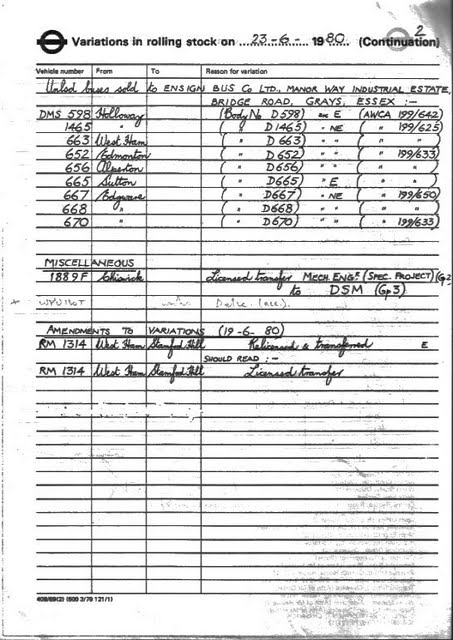 2
Variations in rolling stock on 23-6- 1980 (Continuation)
Vehicle number From To Reason for variation
Untld buses sold to ENSIGN BUS CO LTD., MANOR WAY INDUSTRIAL ESTATE,
BRIDGE ROAD, GRAYS, ESSEX :-
DMS 598 Holloway (Body No D598) ex E (AWCA 199/642)
1465 " ( " D1465) " NE ( " 199/625)
663 West Ham ( " D663) " " ( " " )
652 Edmonton ( " D652) " " ( " 199/633)
656 Alperton ( " D656) " " ( " " )
665 Sutton ( " D665) " E ( " " )
667 Edgware ( " D667) " NE ( " 199/650)
668 " ( " D668) " " ( " " )
670 " ( " D670) " " ( " 199/633)
MISCELLANEOUS
1889F Chiswick Licensed transfer MECH. ENGR. (SPEC. PROJECT) (Gp2)
to DSM (Gp3)
AMENDMENTS TO VARIATIONS (19-6-80)
RM 1314 West Ham Stamford Hill Relicensed & transferred E
SHOULD READ :-
RM 1314 West Ham Stamford Hill Licensed transfer
409/69(2) (500 3/79 121/1)